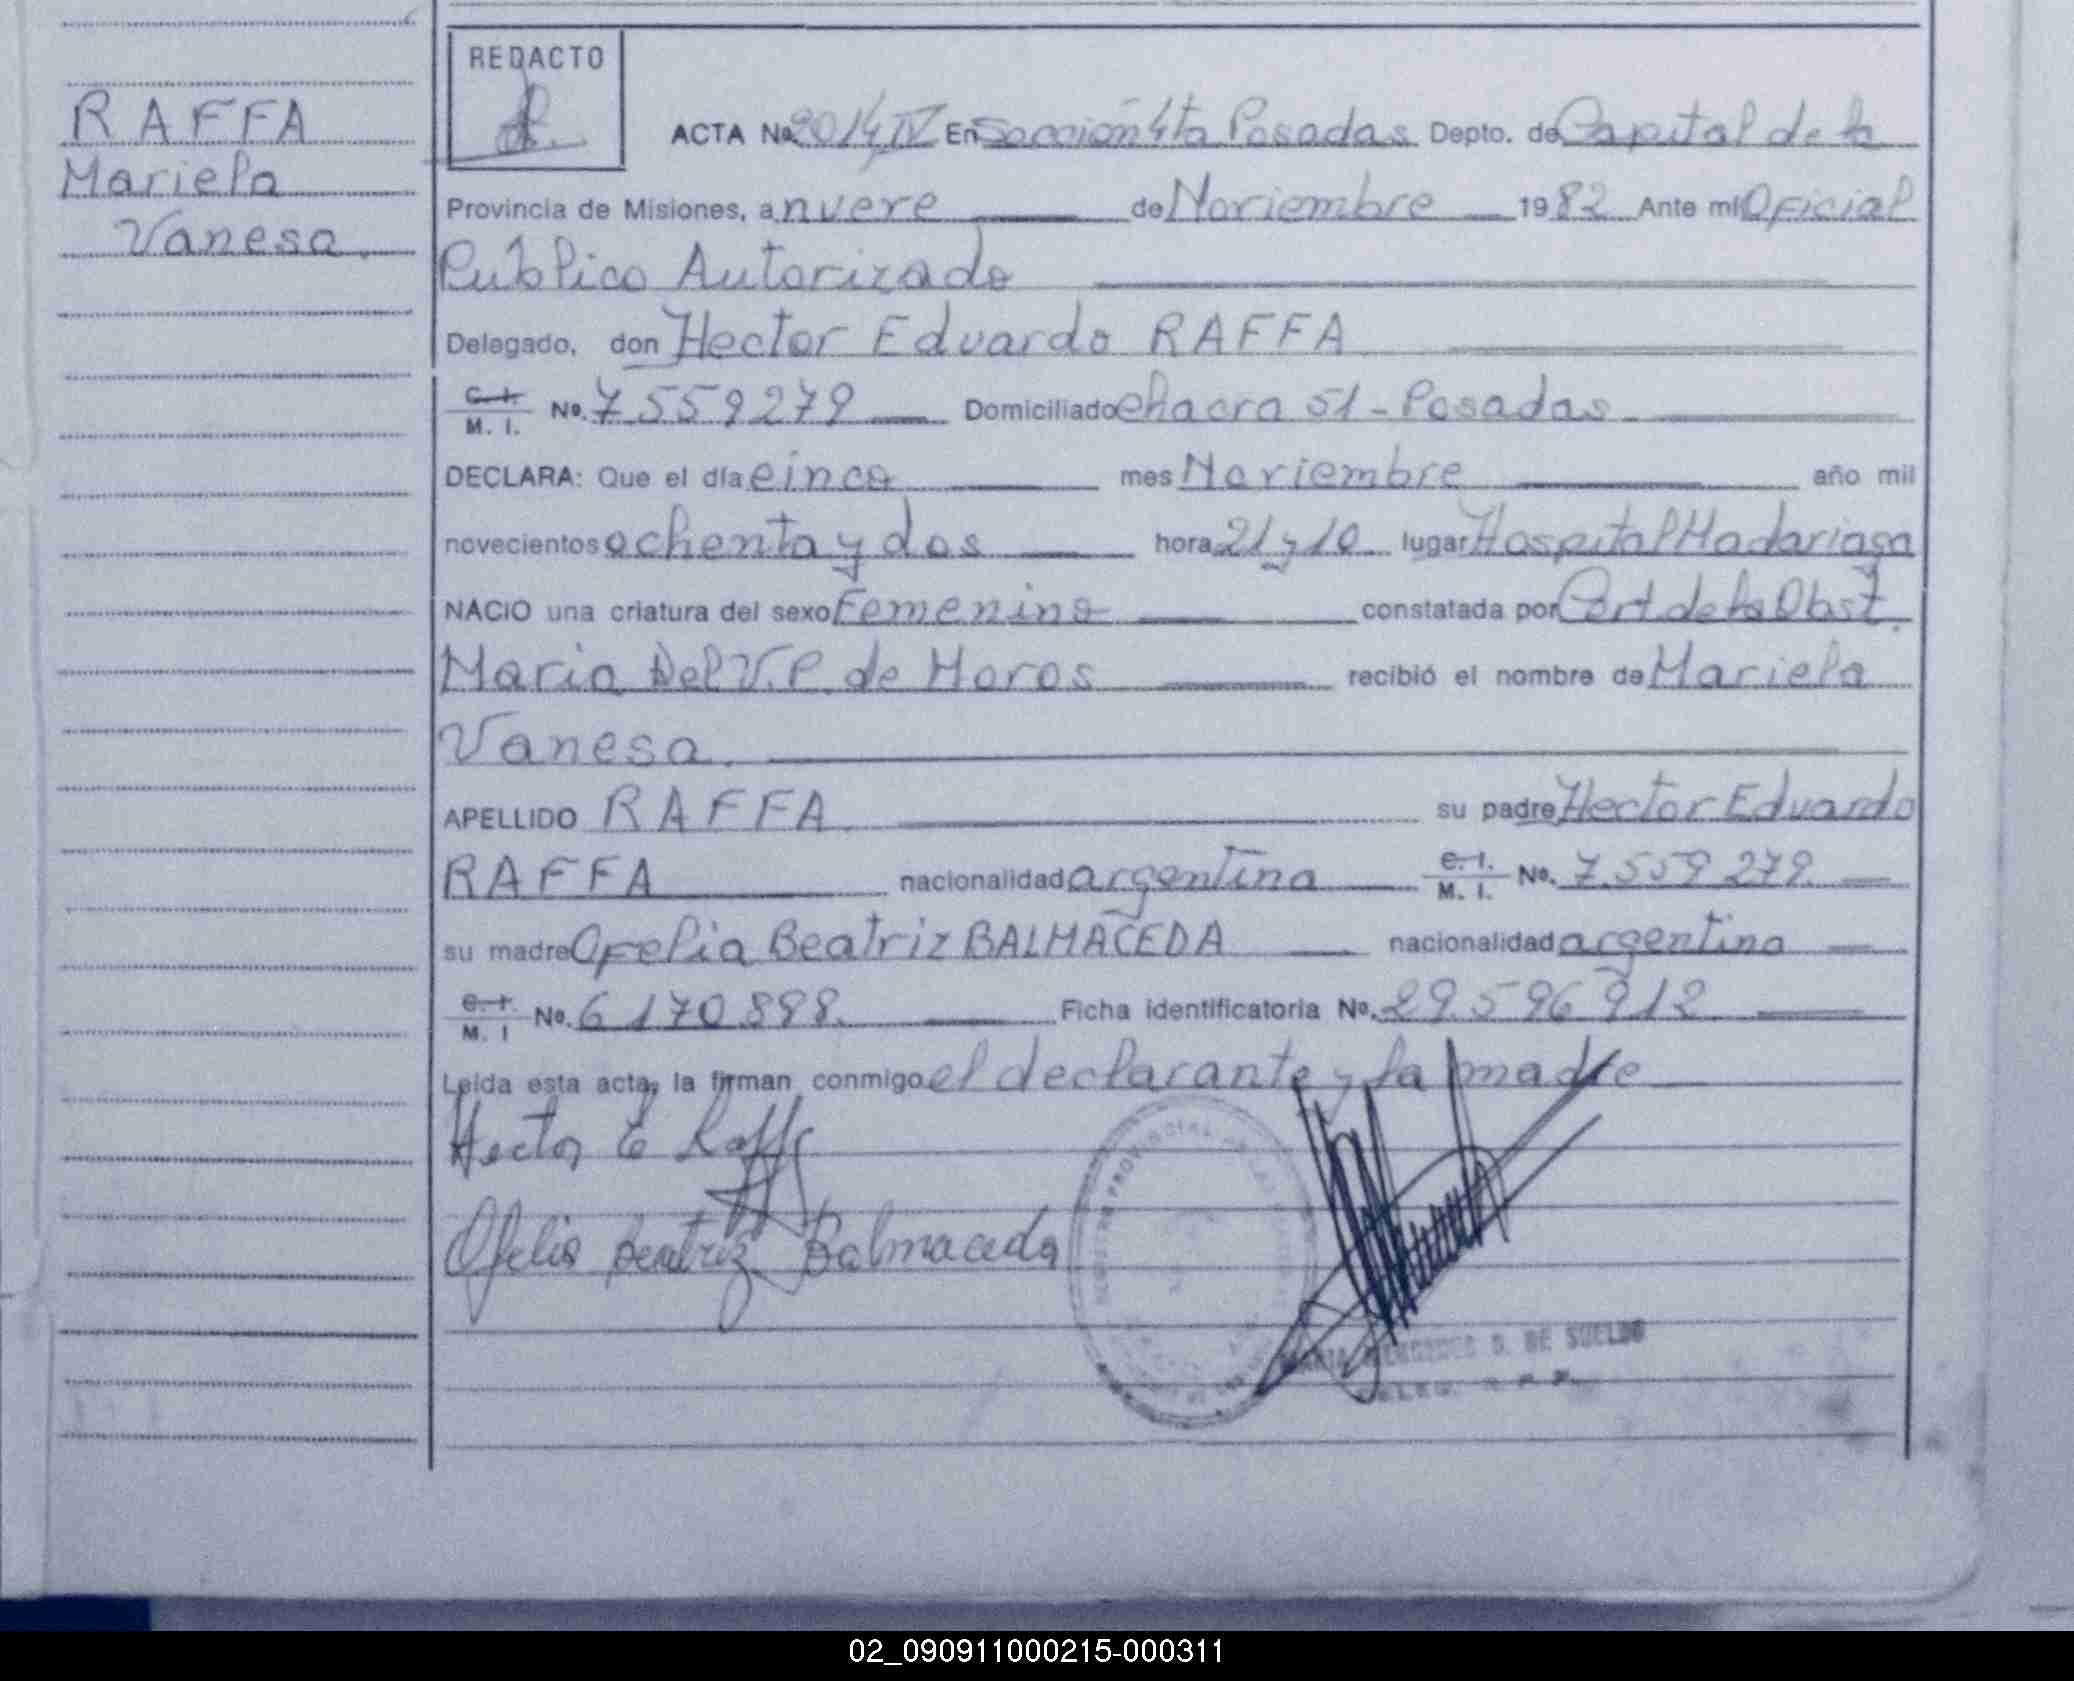 RAFFA
Mariela
Vanesa.
REDACTO
ACTA No. 2014 IV En Sección 4ta Posadas Depto. de Capital de la
Provincia de Misiones, a nueve de Noviembre 1982 Ante mi Oficial
Publico Autorizado
Delegado, don Hector Eduardo RAFFA
C. I. / M. I. No. 7559279 Domiciliado chacra 51 - Posadas
DECLARA: Que el día cinco mes Noviembre año mil
novecientos ochenta y dos hora 21 y 10 lugar Hospital Madariaga
NACIO una criatura del sexo Femenino constatada por Cert de la Obst.
Maria Del V.P. de Moros recibió el nombre de Mariela
Vanesa.
APELLIDO RAFFA su padre Hector Eduardo
RAFFA nacionalidad argentina C. I. / M. I. No. 7.559 279.
su madre Ofelia Beatriz BALMACEDA nacionalidad argentina
C. I. / M. I No. 6 170 898. Ficha identificatoria No. 29.596 912
Leida esta acta, la firman conmigo el declarante y la madre
Hector E Raffa
Ofelia Beatriz Balmaceda
REGISTRO PROVINCIAL DE LAS
D. DE SUELDO
02_090911000215-000311